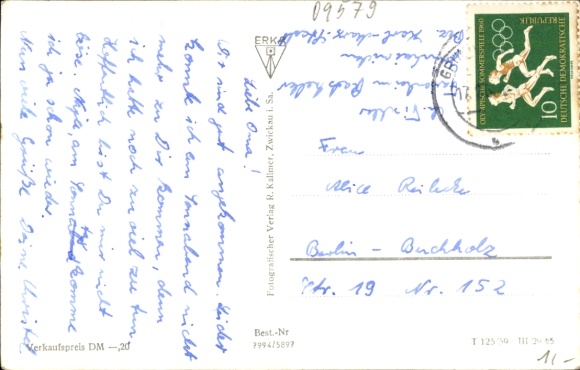 09579
Liebe Oma!
Wir sind gut angekommen. Leider
konnte ich am Sonnabend nicht
mehr zu Dir kommen, denn
ich hatte noch zu viel zu tun.
Hoffentlich bist Du mir nicht
böse. Naja, am Sonnabend komme
ich ja schon wieder.
Nun viele Grüße Deine Christel
ERKA
Fotografischer Verlag R. Kallmer, Zwickau i. Sa.
Verkaufspreis DM —,20
Best.-Nr
7994/5897
OLYMPISCHE SOMMERSPIELE 1960
DEUTSCHE DEMOKRATISCHE
REPUBLIK
10
Frau
Alice
Berlin - Buchholz
Str. 19 Nr. 152
T 125/59
1,-